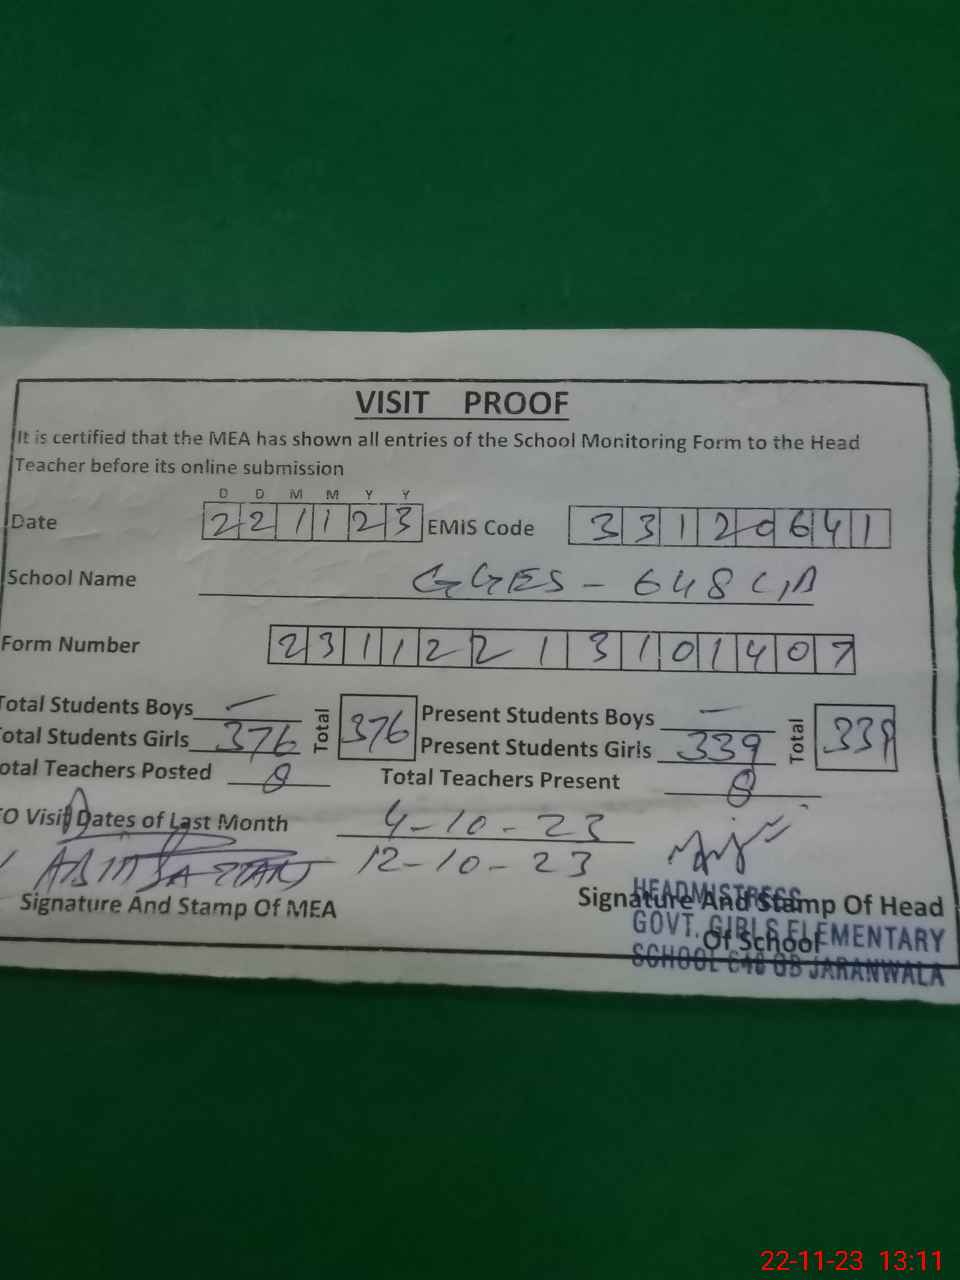 VISIT PROOF
It is certified that the MEA has shown all entries of the School Monitoring Form to the Head
Teacher before its online submission
D D M M Y Y
Date 2 2 1 1 2 3 EMIS Code 3 3 1 2 0 6 4 1
School Name GGES - 648
Form Number 2 3 1 1 2 2 1 3 1 0 1 4 0 7
Total Students Boys — Total 376 Present Students Boys — Total 339
Total Students Girls 376 Present Students Girls 339
otal Teachers Posted 8 Total Teachers Present 8
EO Visit Dates of Last Month 4-10-23
12-10-23
Signature And Stamp Of MEA Signature And Stamp Of Head
Of School
HEADMISTRESS
GOVT. GIRLS ELEMENTARY
SCHOOL 648 GB JARANWALA
22-11-23 13:11